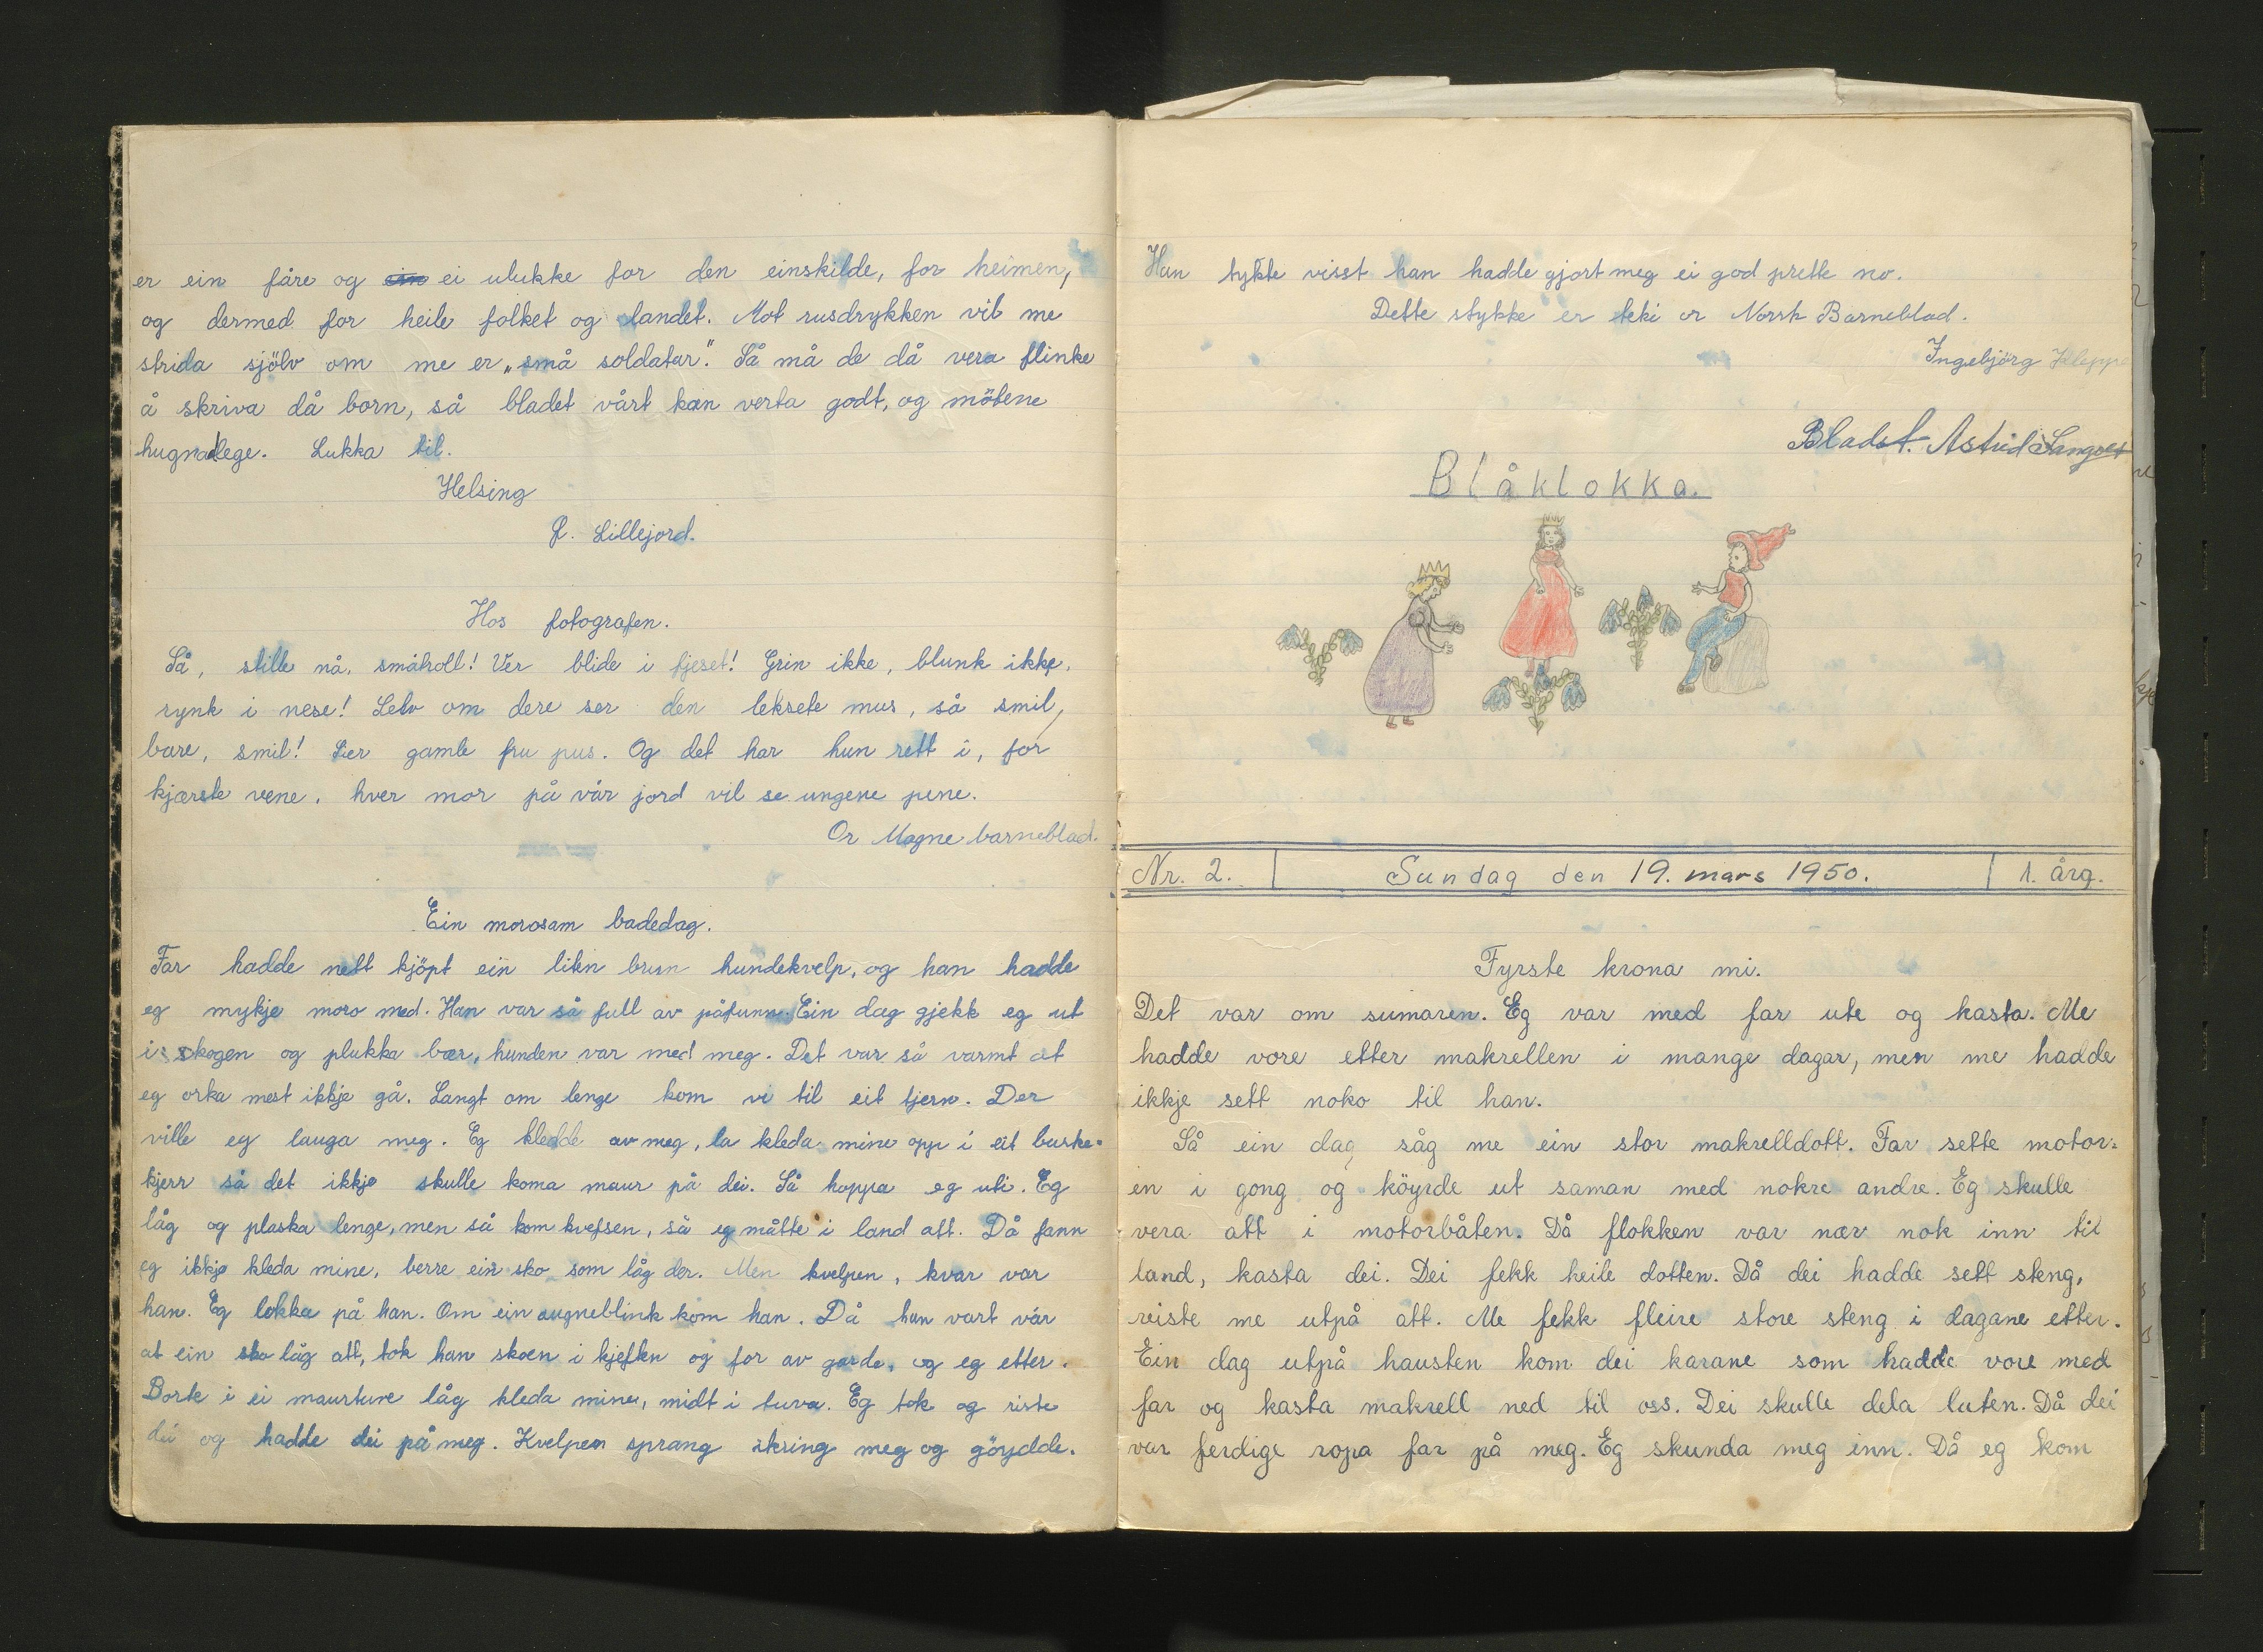 er ein fåre og ein ei ulukke for den einskilde, for heimen,
og dermed for heile folket og landet. Mot rusdrykken vil me
strida sjölv om me er „små soldatar". Så må de då vera flinke
å skriva då born, så bladet vårt kan verta godt, og mötene
hugnadlege. Lukka til.
Helsing
P. Lillejord.
Hos fotografen.
Så, stille nå, småtroll! Ver blide i fjeset! Grin ikke, blunk ikke,
rynk i nese! Selv om dere ser den lekreste mus, så smil,
bare, smil! Sier gamle fru pus. Og det har hun rett i, for
kjærste vene, hver mor på vår jord vil se ungene pene.
Or Magne barneblad.
Ein morosam badedag.
Far hadde nett kjöpt ein liten brun hundekvelp, og han hadde
eg mykje moro med. Han var så full av påfunn. Ein dag gjekk eg ut
i skogen og plukka bær, hunden var med meg. Det var så varmt at
eg orka mest ikkje gå. Langt om lenge kom vi til eit tjern. Der
ville eg lauga meg. Eg kledde av meg, la kleda mine opp i eit buske-
kjerr så det ikkje skulle koma maur på dei. Så hoppa eg uti. Eg
låg og plaska lenge, men så kom kvefsen, så eg måtte i land att. Då fann
eg ikkje kleda mine, berre ein sko som låg der. Men kvelpen, kvar var
han. Eg lokka på han. Om ein augneblink kom han. Då han vart vár
at ein sko låg att, tok han skoen i kjeften og for av garde, og eg etter.
Bork i ei maurtuve låg kleda mine, midt i tuva. Eg tok og riste
dei og hadde dei på meg. Kvelpen sprang ikring meg og göydde.
Han tykte visst han hadde gjort meg ei god prette no.
Dette stykke er teki or Norsk Barneblad.
Ingebjörg Kleppe
Bladst. Astrid Langset
Blåklokka.
Nr. 2. Sundag den 19. mars 1950. 1. årg.
Fyrste krona mi.
Det var om sumaren. Eg var med far ute og kasta. Me
hadde vore etter makrellen i mange dagar, men me hadde
ikkje sett noko til han.
Så ein dag såg me ein stor makrelldott. Far sette motor=
en i gong og köyrde ut saman med nokre andre. Eg skulle
vera att i motorbåten. Då flokken var nær nok inn til
land, kasta dei. Dei fekk heile dotten. Då dei hadde sett steng,
reiste me utpå att. Me fekk fleire store steng i dagane etter.
Ein dag utpå hausten kom dei karane som hadde vore med
far og kasta makrell ned til oss. Dei skulle dela luten. Då dei
var ferdige ropa far på meg. Eg skunda meg inn. Då eg kom